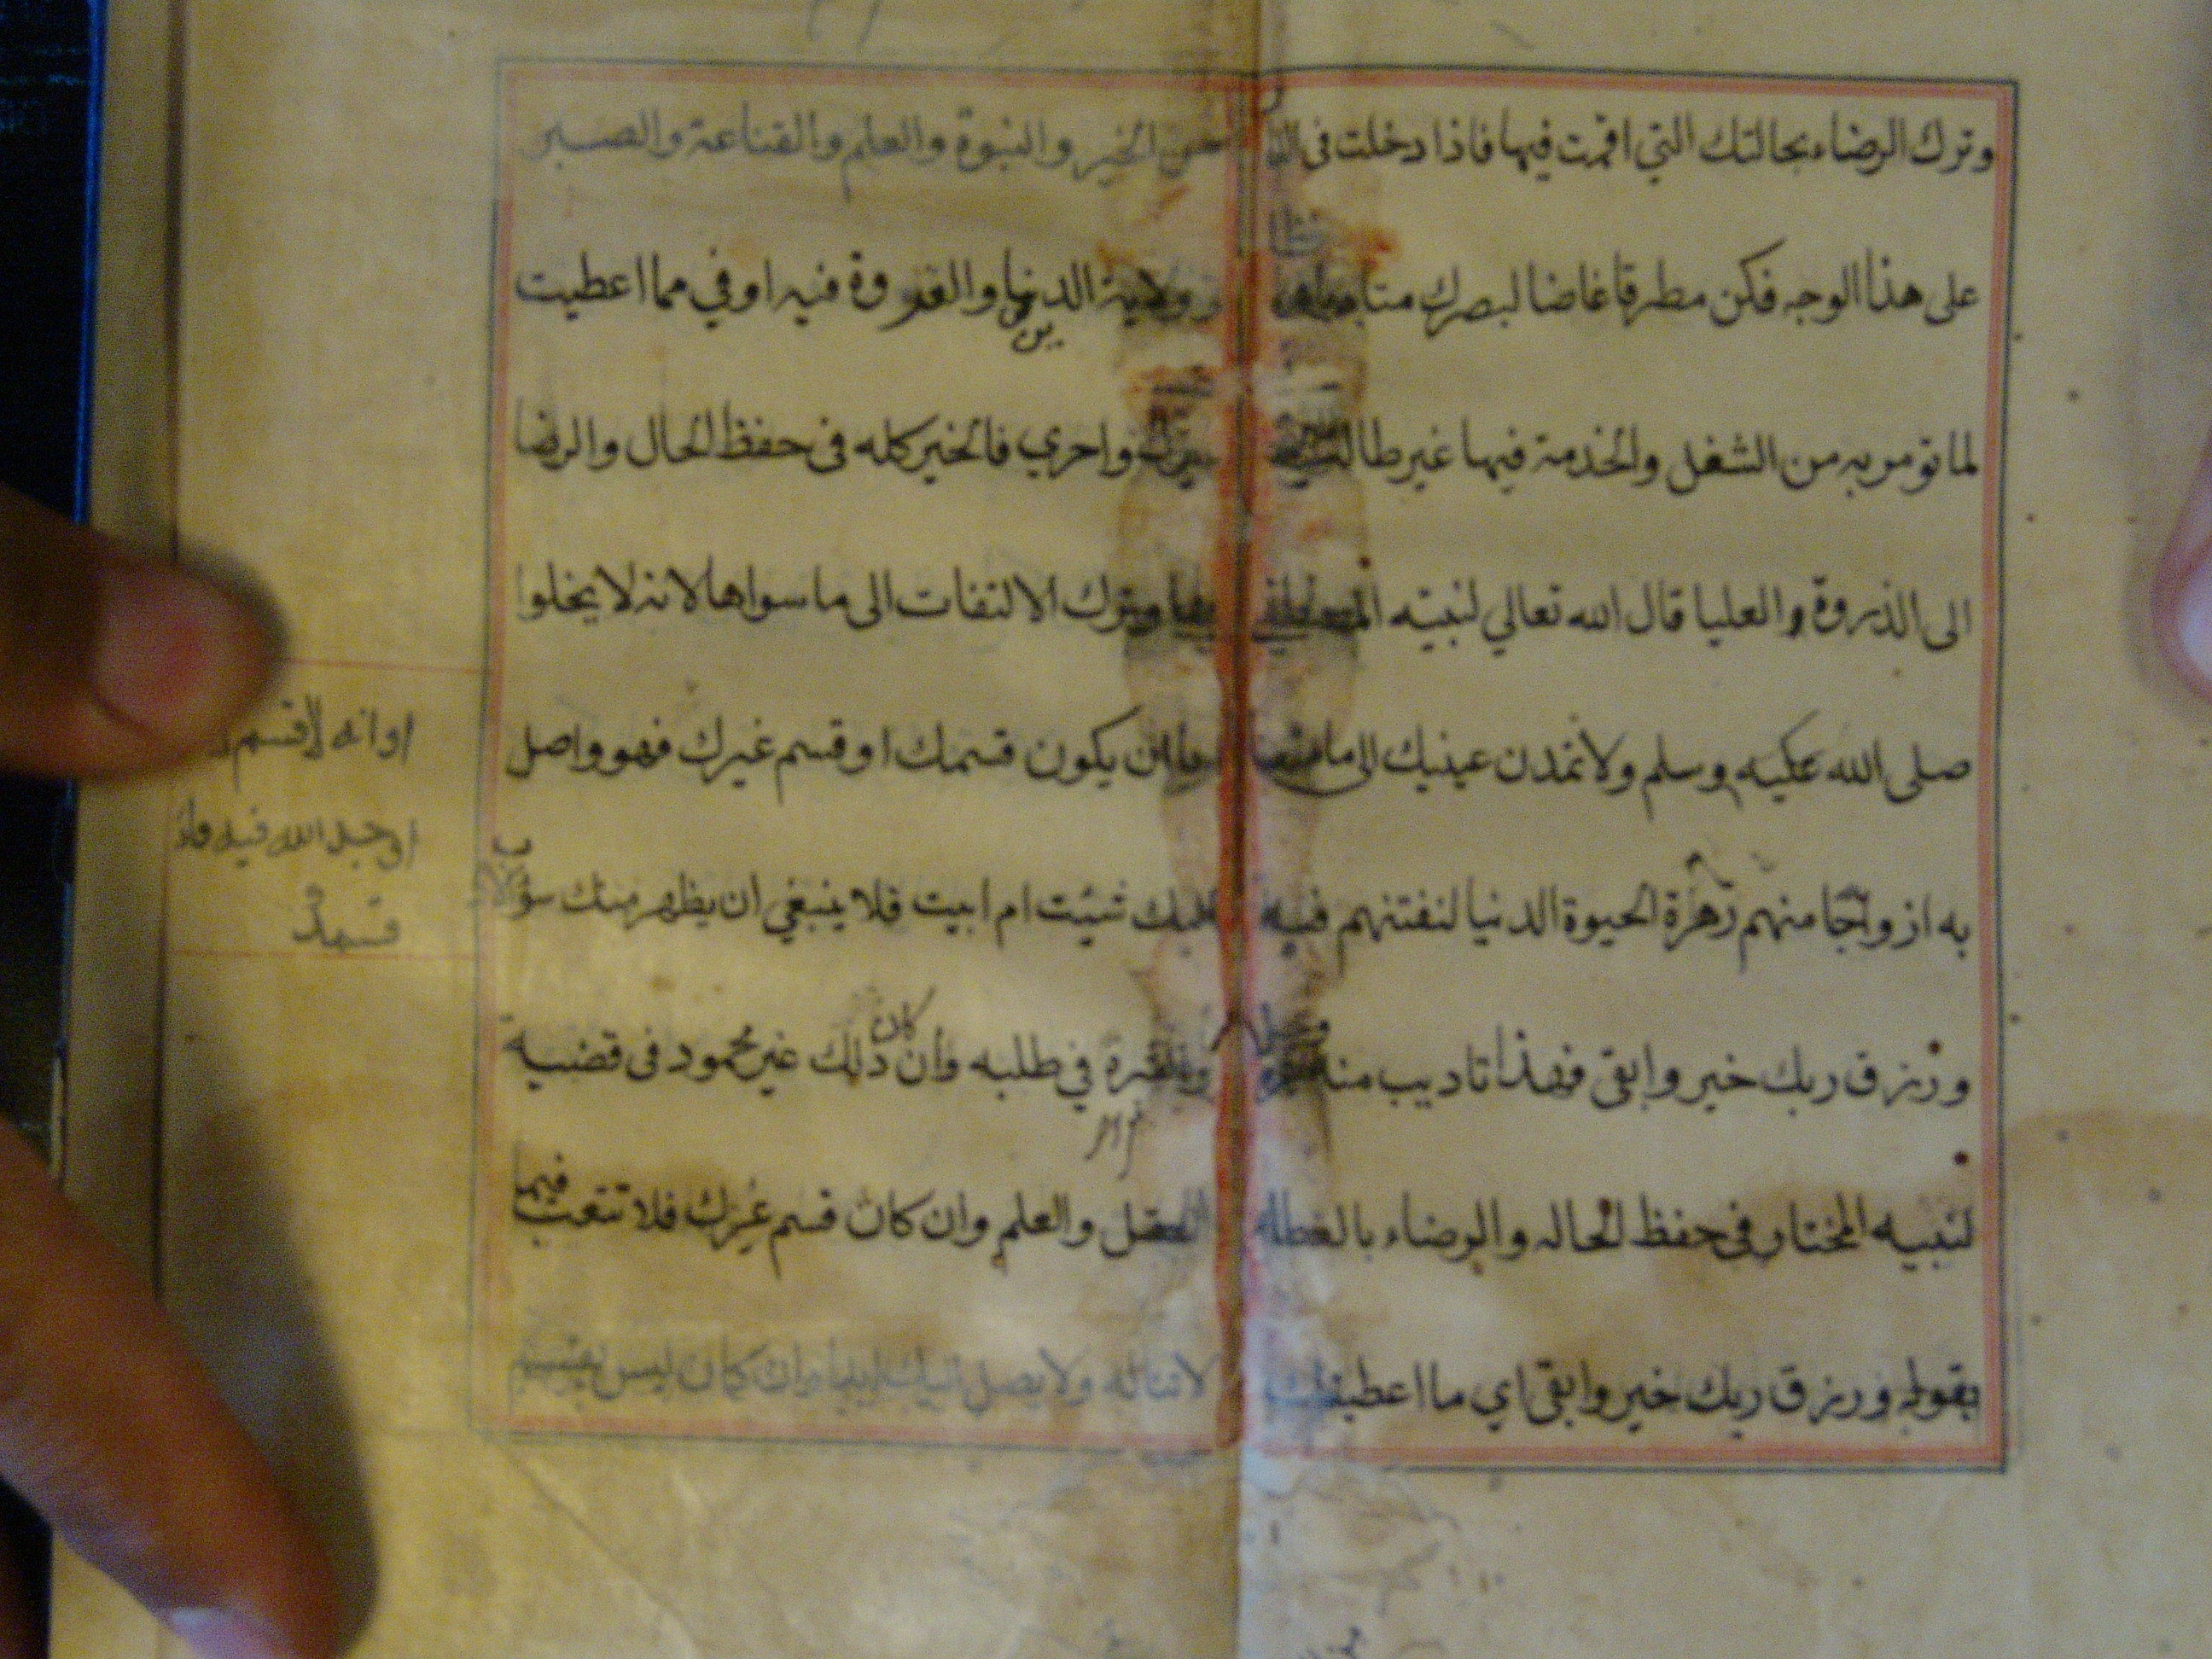 وترك الرضاء بحالتك التي اقمت فيها فاذا دخلت فى
على هذا الوجه فكن مطرقا غاضا لبصرك
لما تومر به من الشغل والخدمة فيها غير طالب
الى الذروة والعليا قال الله تعالي لنبيه المصطفى
صلى الله عليه وسلم ولا تمدن عينيك الى ما متعنا
به ازواجا منهم زهرة الحيوة الدنيا لنفتنهم فيه
ورزق ربك خير وابقى فهذا تاديب منه
لنبيه المختار فى حفظ الحاله والرضاء بالعطاء
بقوله ورزق ربك خير وابقى اي ما اعطيتك
من الخير والنبوة والعلم والقناعة والصبر
وولاية الدين والقدوة فيه اوفي مما اعطيت
غيرك واحري فالخير كله فى حفظ الحال والرضا
بها وترك الالتفات الى ما سواها لانه لا يخلوا
اما ان يكون قسمك او قسم غيرك فهو واصل
اليك شئت ام ابيت فلا ينبغي ان يظهر منك سؤ
والشره في طلبه وان كان ذلك غير محمود فى قضية
العقل والعلم وان كان قسم غيرك فلا تتعب فيما
لا تناله ولا يصل اليك ابدا وان كان ليس بقسم
او انه لا قسم
اوجده الله فيه